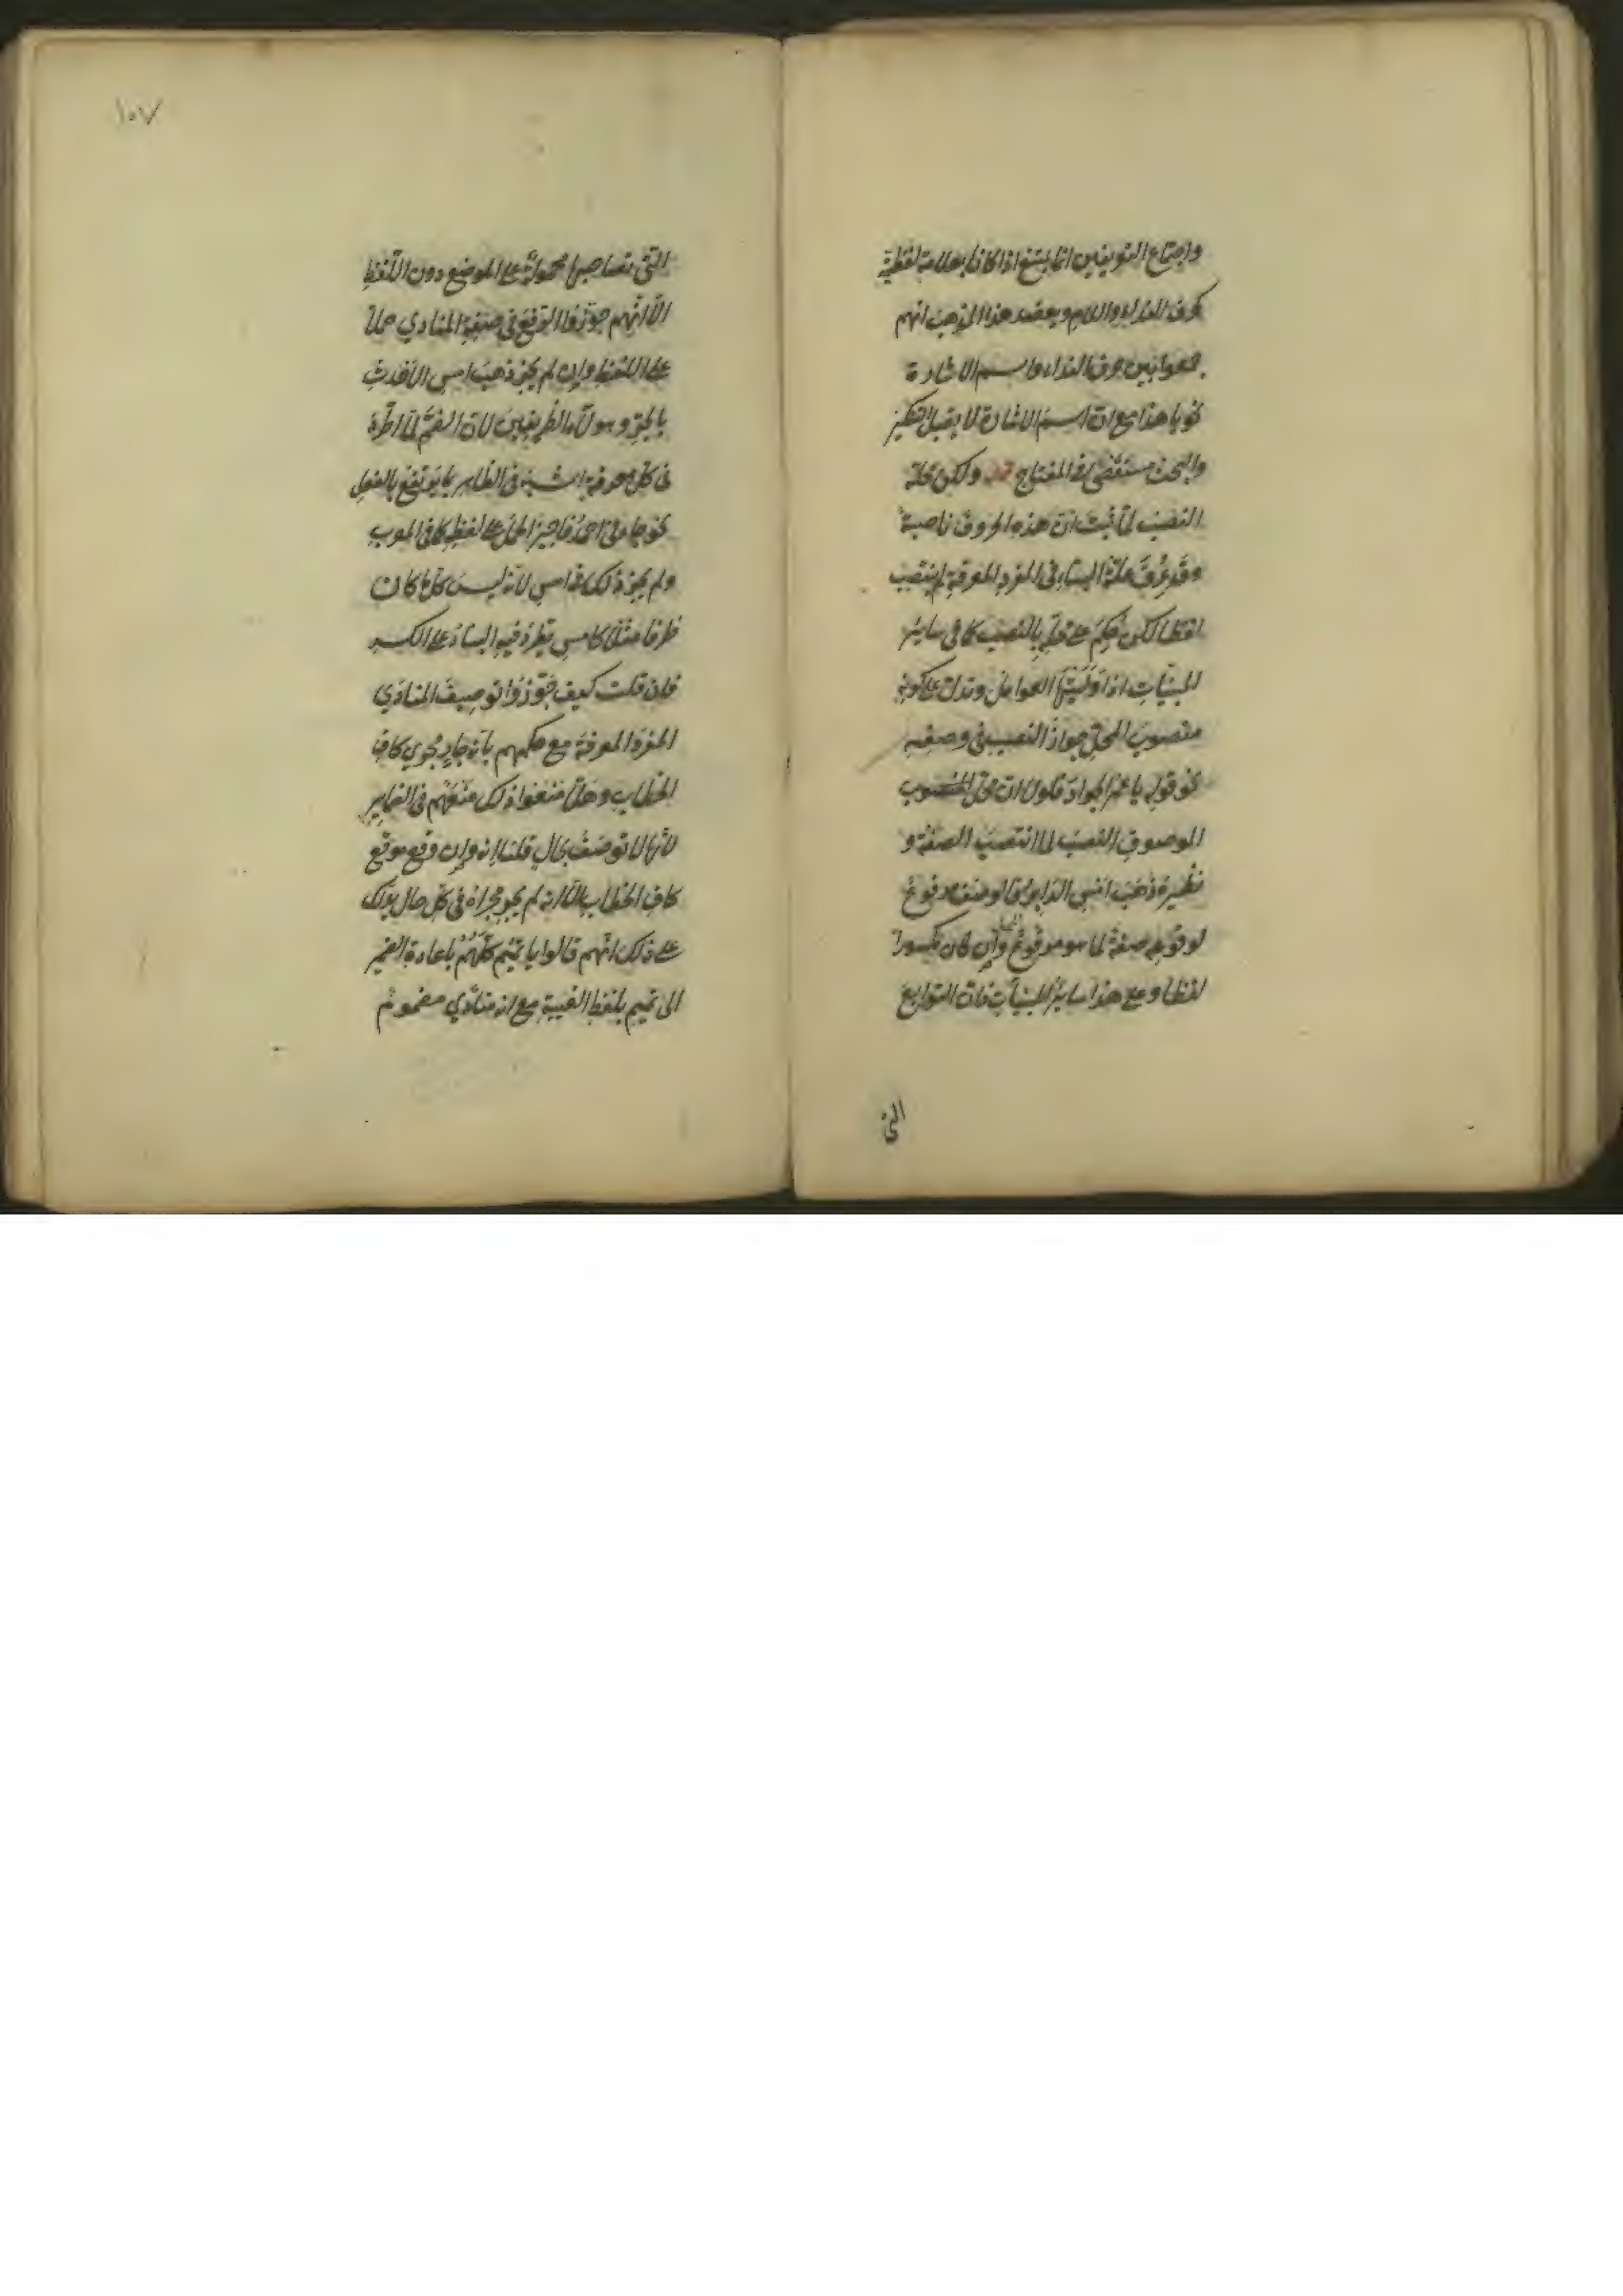 واجتماع التعريفين انما يمتنع اذا كانا بعلامة لفظية
كحرف النداء واللام ويعضد هذا المذهب انهم
جمعوا بين حرف النداء واسم الاشارة
نحو يا هذا مع ان اسم الاشارة لا يقبل التنكير
والبحث مستقصى في المفتاح ولكن محله
النصب لما ثبت ان هذه الحروف ناصبة
وقد عرف علة البناء في المفرد المعرفة لم ينتصب
لفظا لكن حكم على محله بالنصب كما في ساير
المبنيات اذا وليتها العوامل وتدل على كونه
منصوب المحل جواز النصب في وصفه
نحو قوله يا عمر الجوادا فلولا ان محل
الموصوف النصب لما انتصب الصفة و
نظيره ذهب امس الدابر في الوصف مرفوع
لوقوعه صفة لما هو مرفوع المحل وان كان مكسورا
لفظا وعلى هذا ساير المبنيات فان التوابع
التي
١٠٧
التي تصاحبها محمولة على الموضع دون اللفظ
الا انهم جوزوا الرفع في صفة المنادي حملا
على اللفظ وان لم يجز ذهب امس الاحدث
بالجر وهو لاء الظريفين لان الضم لما اطرد
في كل معرفة اشبه في الظاهر ما يرتفع بالفعل
نحو جاءني احمد فاجيز الحمل على لفظه كما في المعرب
ولم يجز ذلك في امس لانه ليس كل ما كان
ظرفا مثل كامس يطرد فيه البناء على الكسر
فان قلت كيف جوزوا توصيف المنادي
المفرد المعرفة مع حكمهم بانه جار مجري كاف
الخطاب وهلا منعوا ذلك منعهم في الضماير
لانها لا توصف بحال قلنا انه وان وقع موقع
كاف الخطاب الا انه لم يجر مجراه في كل حال يدلك
على ذلك انهم قالوا يا تميم كلهم باعادة الضمير
الى تميم بلفظ الغيبة مع انه منادي مضموم